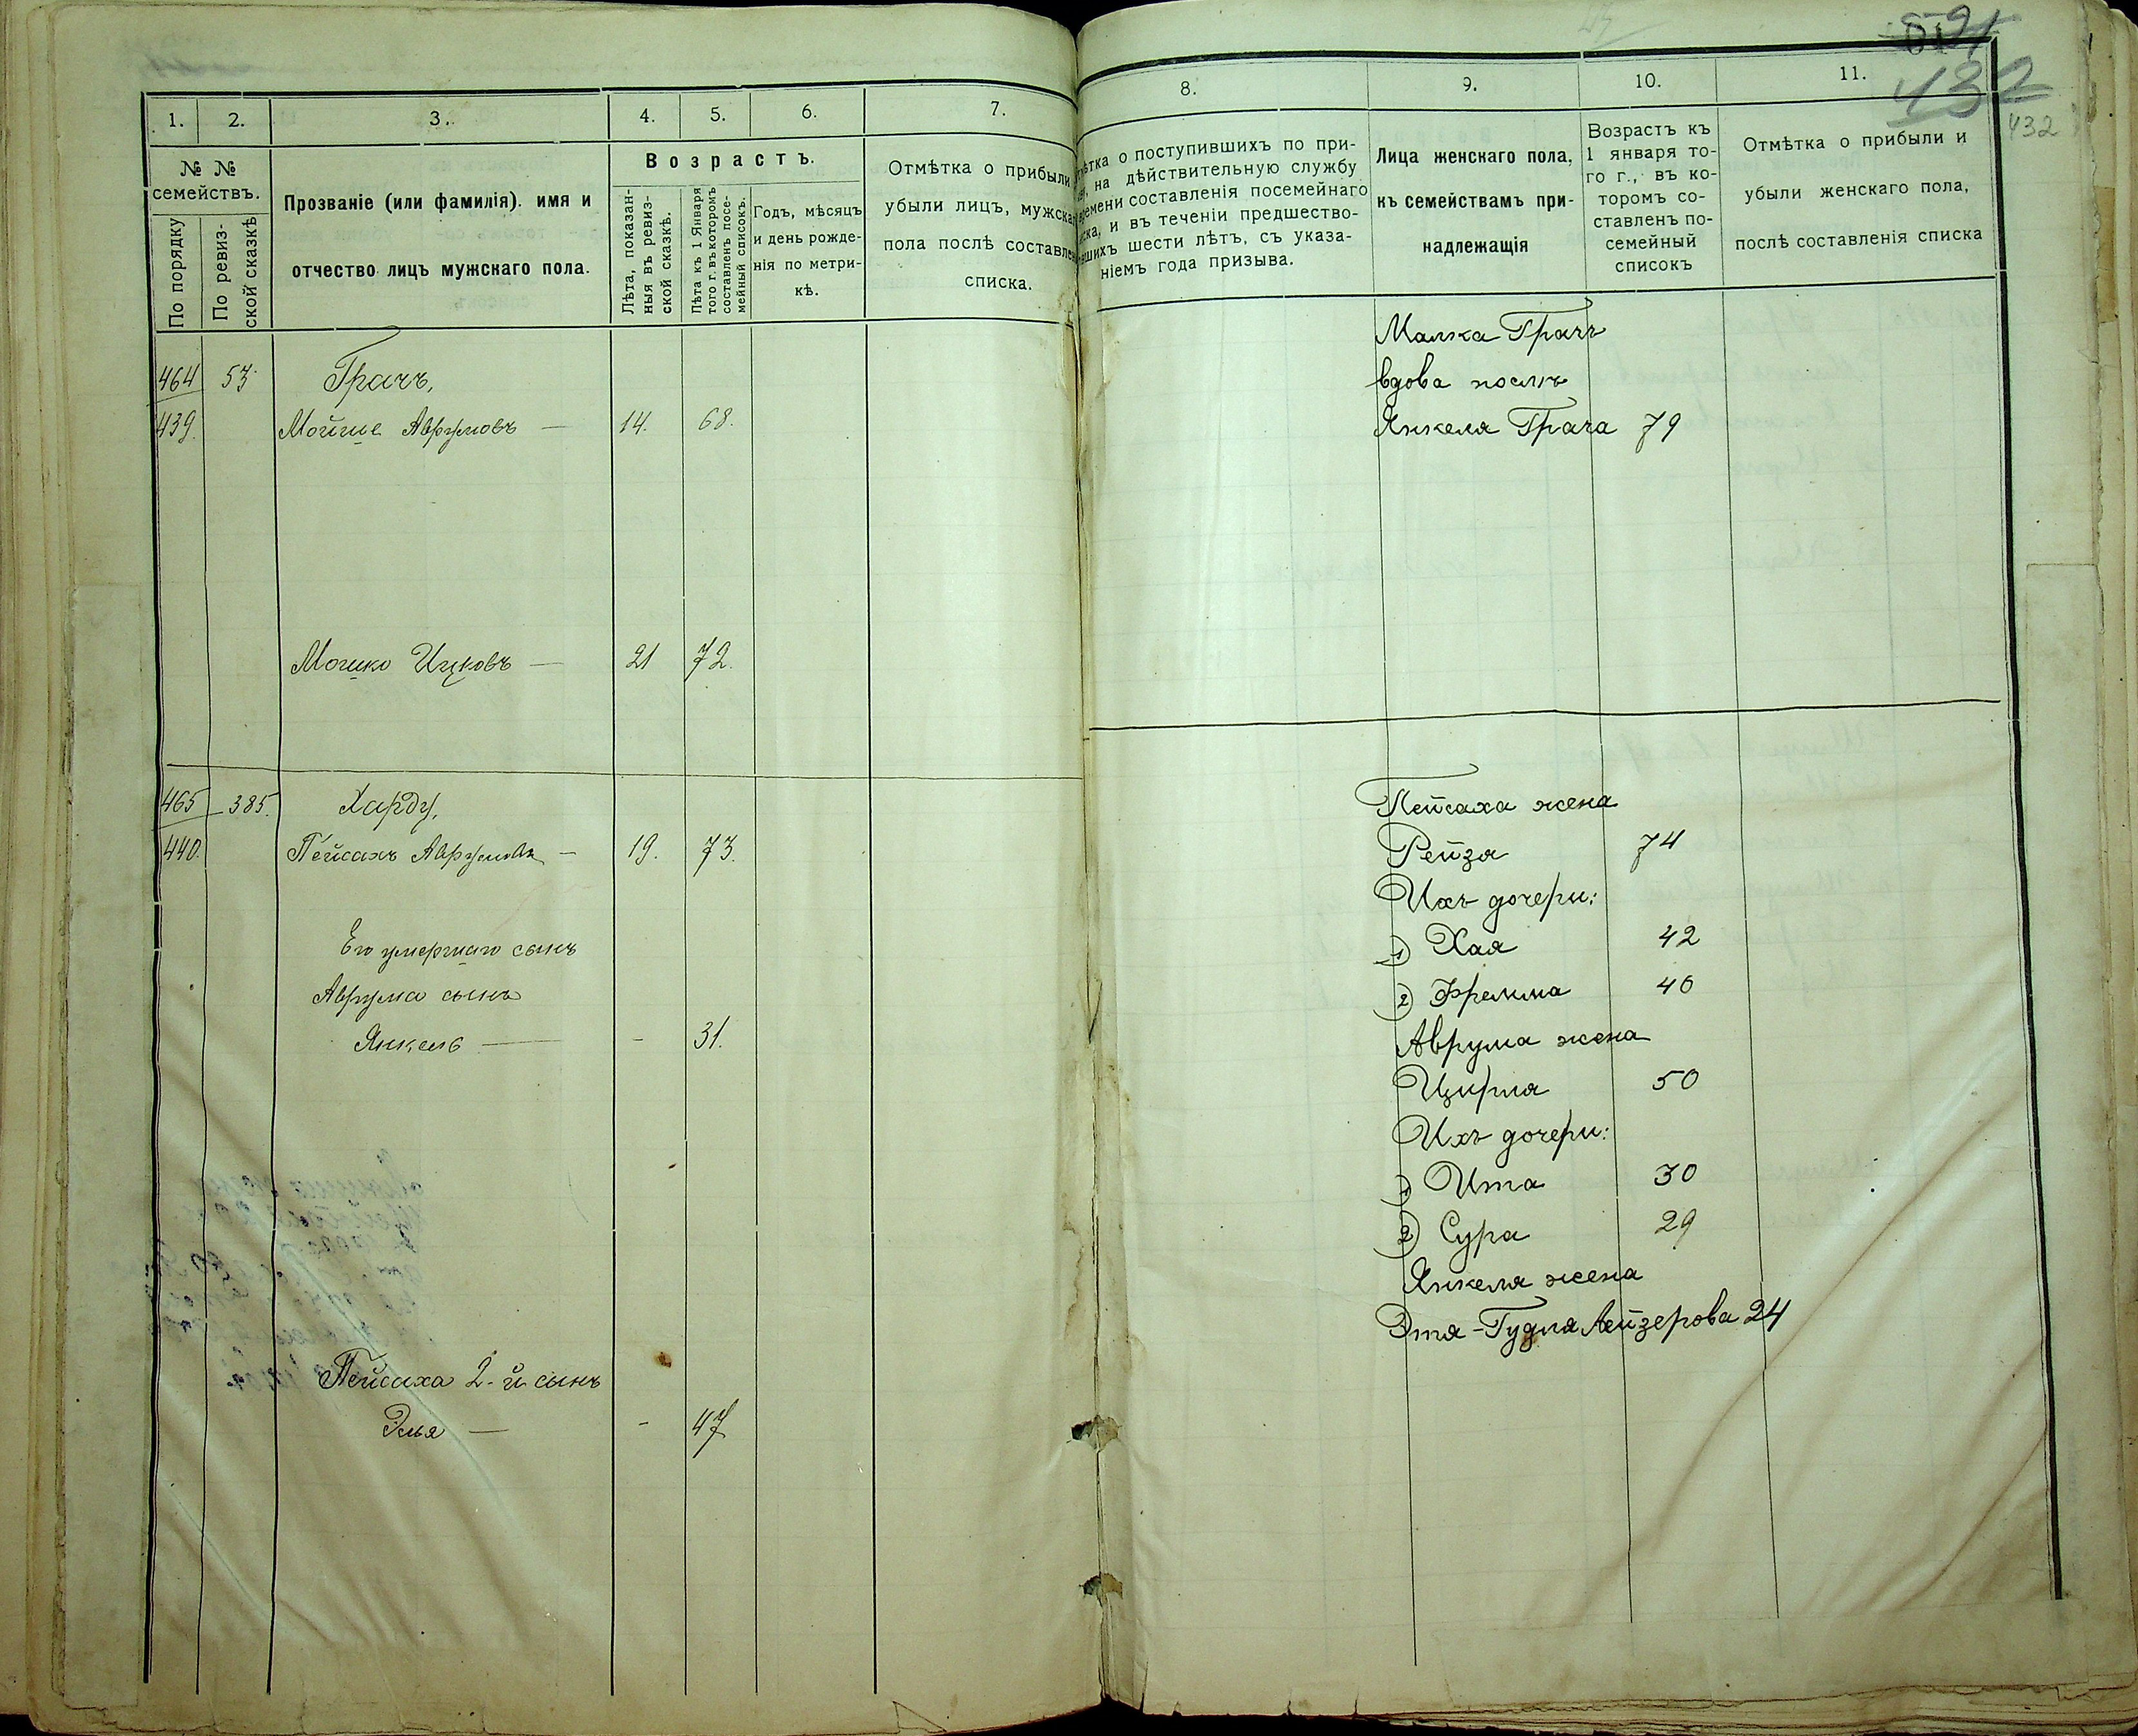 1.
2.
3.
4.
5.
6.
7.
№ №
семействъ.
По порядку
По ревиз-
ской сказкѣ
Прозваніе (или фамилія). имя и
отчество лицъ мужскаго пола.
Возрастъ.
Лѣта, показан-
ныя въ ревиз-
ской сказкѣ.
Лѣта къ 1 Января
того г. въ которомъ
составленъ посе-
мейный списокъ.
Годъ, мѣсяцъ
и день рожде-
нія по метри-
кѣ.
Отмѣтка о прибыли
убыли лицъ, мужска
пола послѣ составле
списка.
464 53 Грачъ,
439. Мойше Аврумовъ — 14. 68.
Мошко Ицковъ — 21 72.
465 385. Харду,
440. Пейсахъ Аврумовъ — 19. 73.
Его умершаго сынъ
Аврума сынъ
Янкель — - 31.
Пейсаха 2-й сынъ
Элья — - 47
432
432
8.
9.
10.
11.
ѣтка о поступившихъ по при-
на дѣйствительную службу
ремени составленія посемейнаго
ска, и въ теченіи предшество-
вшихъ шести лѣтъ, съ указа-
ніемъ года призыва.
Лица женскаго пола,
къ семействамъ при-
надлежащія
Возрастъ къ
1 января то-
го г., въ ко-
торомъ со-
ставленъ по-
семейный
списокъ
Отмѣтка о прибыли и
убыли женскаго пола,
послѣ составленія списка
Малка Грачъ
вдова послѣ
Янкеля Грача 79
Пейсаха жена
Рейзя 74
Ихъ дочери:
1) Хая 42
2) Фрейма 40
Аврума жена
Цирля 50
Ихъ дочери:
1) Ита 30
2) Сура 29
Янкеля жена
Этя-Гудля Лейзерова 24